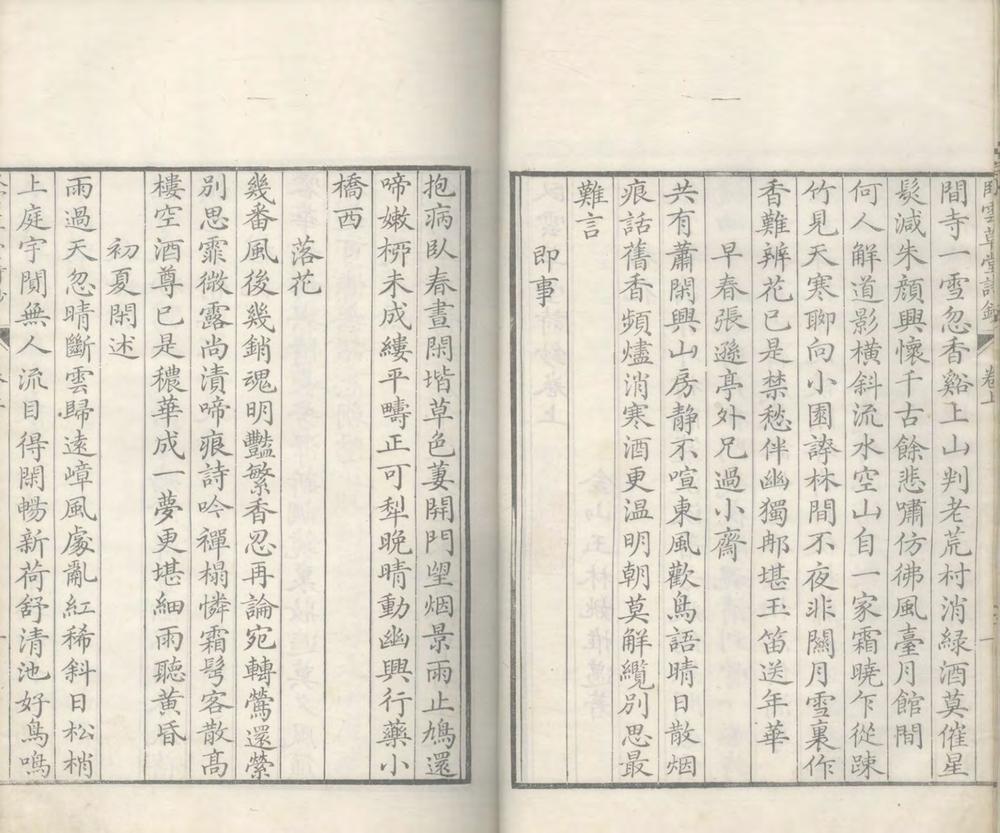 臥雲草堂詩鈔 卷上 一
間寺一雪忽香谿上山判老荒村消綠酒莫催星
髮減朱顏興懷千古餘悲嘯仿彿風臺月館間
何人解道影橫斜流水空山自一家霜曉乍從踈
竹見天寒聊向小園誇林間不夜非關月雪裏作
香難辨花已是禁愁伴幽獨那堪玉笛送年華
早春張遜亭外兄過小齋
共有蕭閑興山房静不喧東風歡鳥語晴日散烟
痕話舊香頻燼消寒酒更温明朝莫解纜別思最
難言
即事
抱病臥春晝閑堦草色萋開門望烟景雨止鳩還
啼嫩栁未成縷平疇正可犁晚晴動幽興行藥小
橋西
落花
幾番風後幾銷魂明豔繁香忍再論宛轉鶯還縈
別思霏微露尚漬啼痕詩吟禪榻憐霜鬢客散高
樓空酒尊已是穠華成一夢更堪細雨聽黃昏
初夏閑述
雨過天忽晴斷雲歸遠嶂風處亂紅稀斜日松梢
上庭宇閴無人流目得閑暢新荷舒清池好鳥鳴